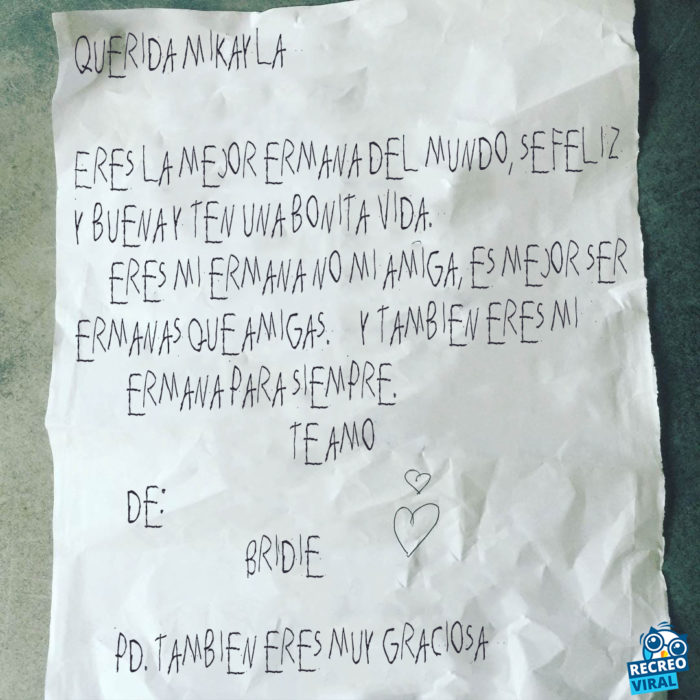 QUERIDA MIKAYLA
ERES LA MEJOR ERMANA DEL MUNDO, SE FELIZ
Y BUENA Y TEN UNA BONITA VIDA.
ERES MI ERMANA NO MI AMIGA, ES MEJOR SER
ERMANAS QUE AMIGAS. Y TAMBIEN ERES MI
ERMANA PARA SIEMPRE.
TE AMO
DE:
BRIDIE
PD. TAMBIEN ERES MUY GRACIOSA
RECREO
VIRAL